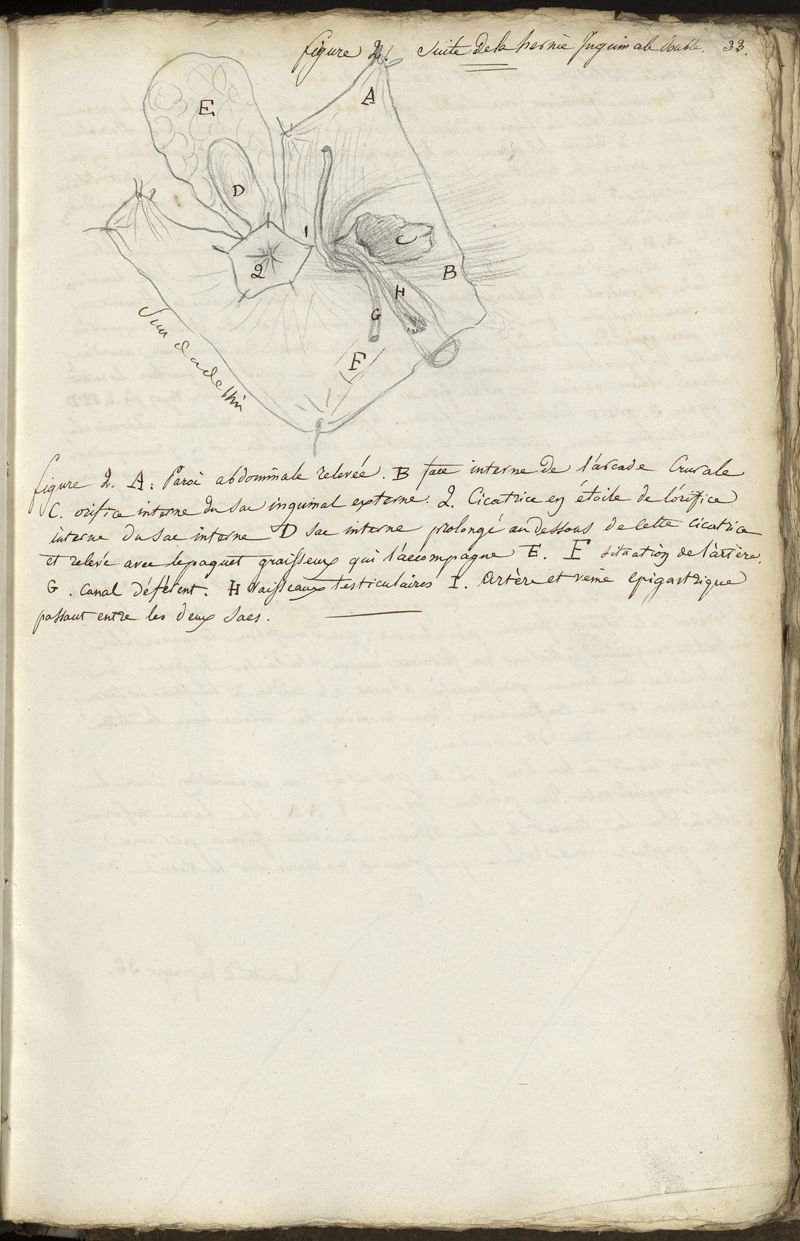 figure 2. Suite de la hernie Inguinale double. 33.
A
E
D
1
C
2
B
H
G
F
figure 2. A: Paroi abdominale relevée. B face interne de l'arcade Crurale
C. orifice interne du sac inguinal externe. 2. Cicatrice en étoile de l'orifice
interne du sac interne D sac interne prolongé au dessous de cette cicatrice
et relevé avec le paquet graisseux qui l'accompagne E. F situation de l'artère.
G. Canal déférent. H Vaisseaux testiculaires 1. Artère et veine epigastrique
passant entre les deux sacs.